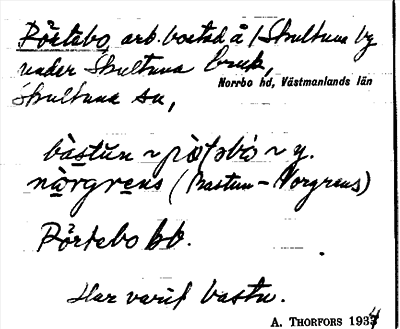 Pörtebo, arb. bostad å 1 Skultuna by
under Skultuna bruk,
Norrbo hd, Västmanlands län
Skultuna sn,
bàstŭn ~ ~ y.
nòrgrens (Bastun-Norgrens)
Pörtebo bb.
Har varit bastu.
A. THORFORS 1934